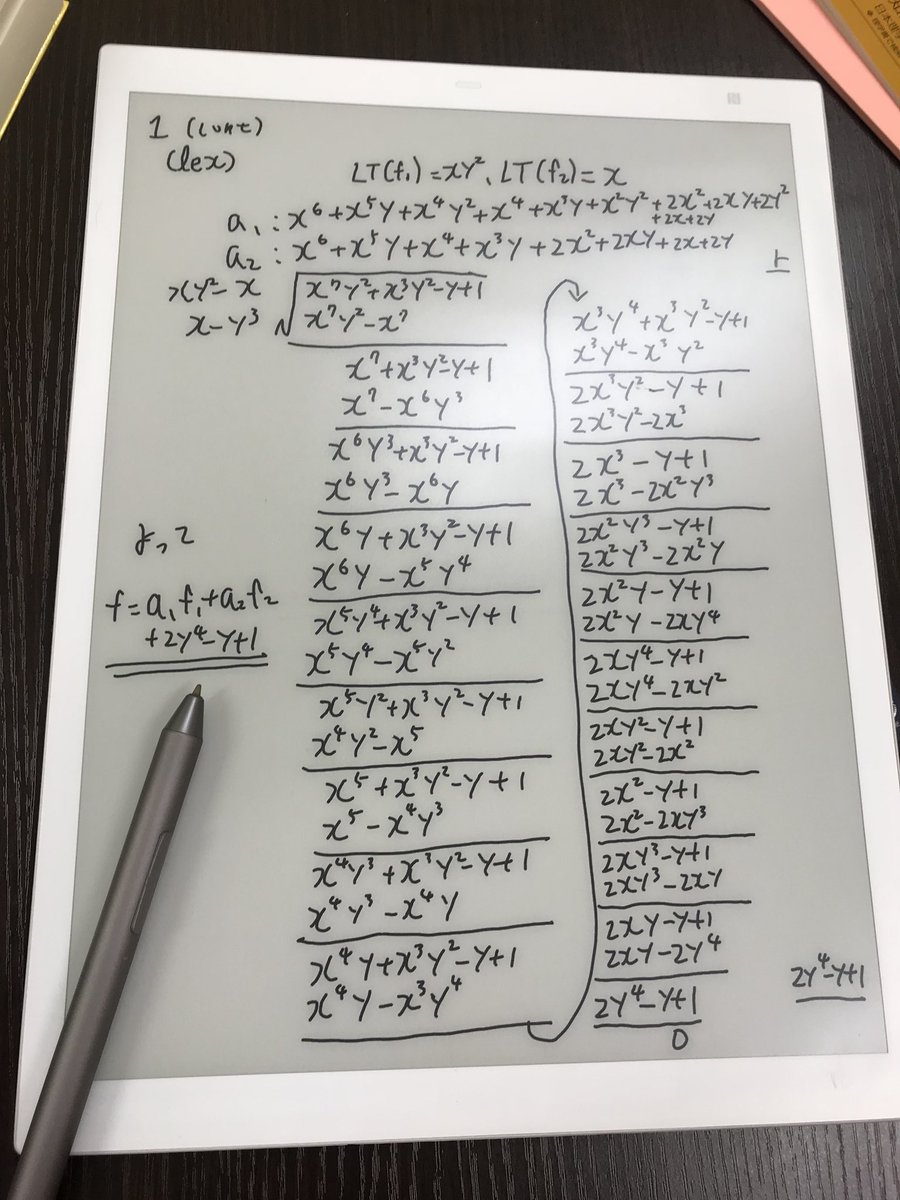 1 (cont)
(lex)
LT(f₁)=xy²、LT(f₂)=x
a₁:x⁶+x⁵y+x⁴y²+x⁴+x³y+x²y²+2x²+2xy+2y²
+2x+2y
a₂:x⁶+x⁵y+x⁴+x³y+2x²+2xy+2x+2y
xy²-x
x-y³
x⁷y²+x³y²-y+1
x⁷y²-x⁷
x⁷+x³y²-y+1
x⁷-x⁶y³
x⁶y³+x³y²-y+1
x⁶y³-x⁶y
x⁶y+x³y²-y+1
x⁶y-x⁵y⁴
x⁵y⁴+x³y²-y+1
x⁵y⁴-x⁵y²
x⁵y²+x³y²-y+1
x⁴y²-x⁵
x⁵+x³y²-y+1
x⁵-x⁴y³
x⁴y³+x³y²-y+1
x⁴y³-x⁴y
x⁴y+x³y²-y+1
x⁴y-x³y⁴
r
x³y⁴+x³y²-y+1
x³y⁴-x³y²
2x³y²-y+1
2x³y²-2x³
2x³-y+1
2x³-2x²y³
2x²y³-y+1
2x²y³-2x²y
2x²y-y+1
2x²y-2xy⁴
2xy⁴-y+1
2xy⁴-2xy²
2xy²-y+1
2xy²-2x²
2x²-y+1
2x²-2xy³
2xy³-y+1
2xy³-2xy
2xy-y+1
2xy-2y⁴
2y⁴-y+1
0
2y⁴-y+1
よって
f=a₁f₁+a₂f₂
+2y⁴-y+1